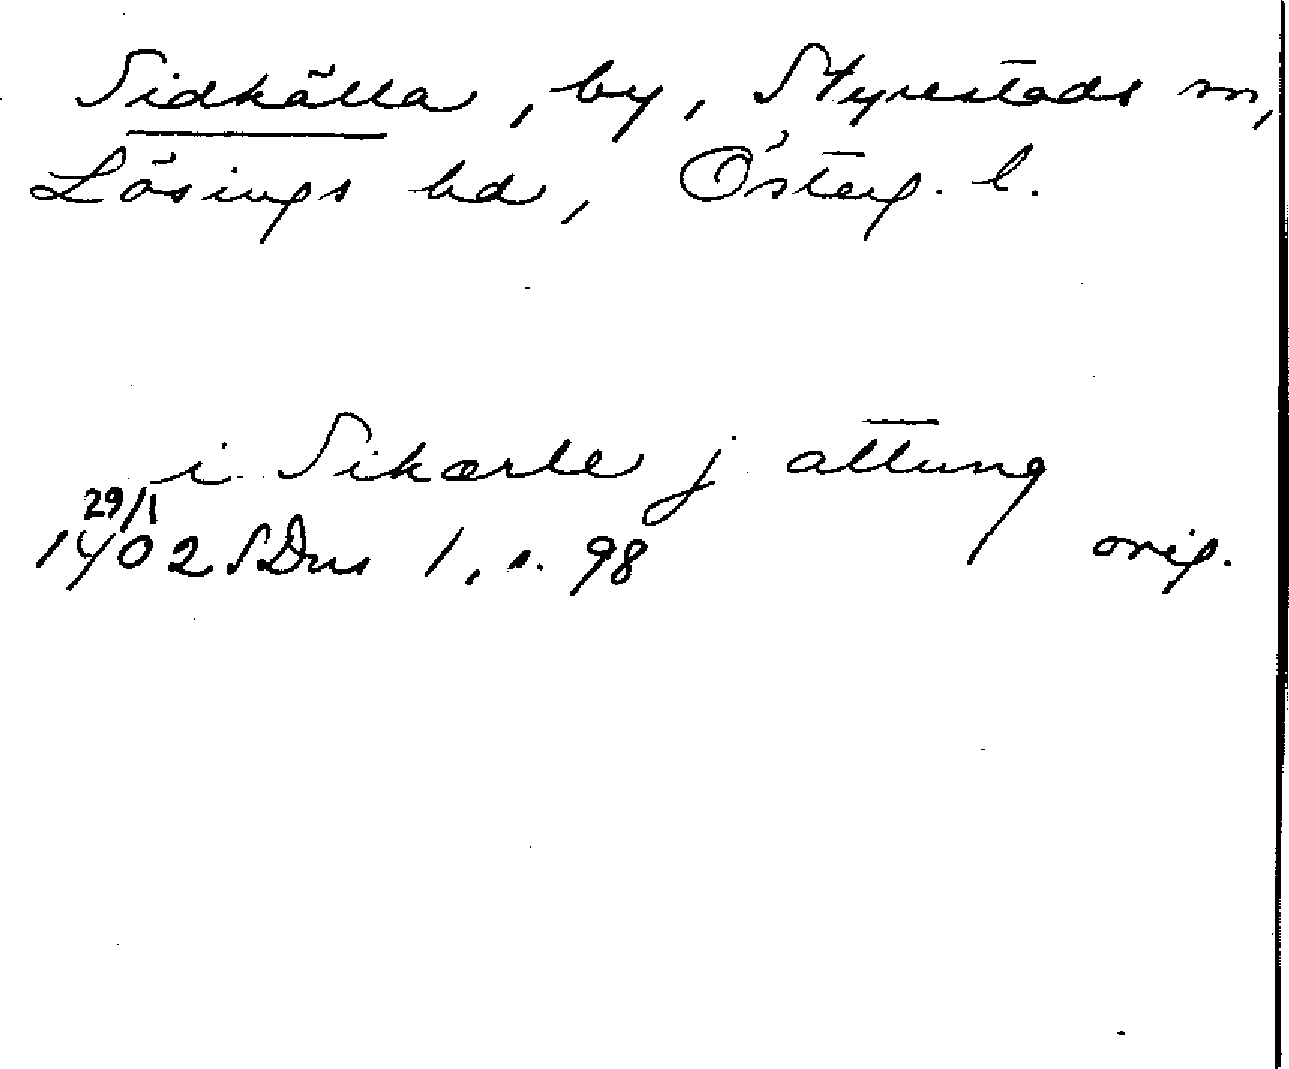 Sidkälla, by, Styrestads sn,
Lösings hd, Österg. l.
i Sikærle j attung
29/1
1402 SDns 1, s. 98 orig.